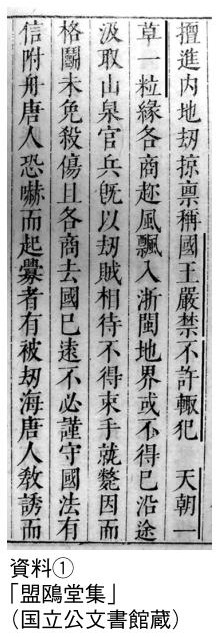 擅進内地刧掠禀稱國王嚴禁不許輙犯　天朝一
草一粒緣各商趂風飄入浙閩地界或不得已沿途
汲取山泉官兵旣以刧賊相待不得束手就斃因而
格鬭未免殺傷且各商去國已遠不必謹守國法有
信附舟唐人恐嚇而起釁者有被刧海唐人敎誘而
資料①
「盟鷗堂集」
（国立公文書館蔵）